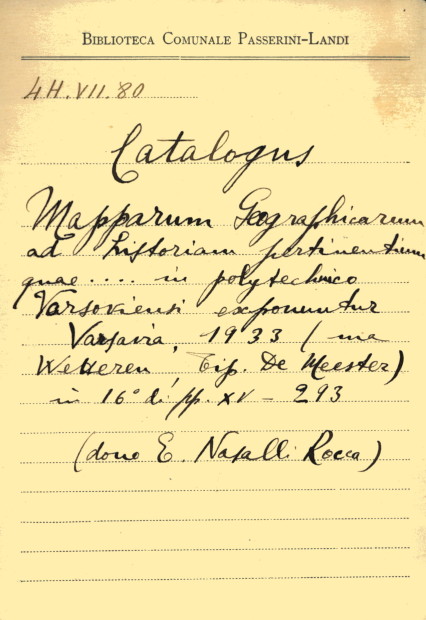 BIBLIOTECA COMUNALE PASSERINI-LANDI
4H.VII.80
Catalogus
Mapparum Geographicarum
ad historiam pertinentium
quae .... in polytechnico
Varsoviensi exponentur
Varsavia, 1933 (ma
Wetteren, Tip. De Meester)
in 16° di pp. XV - 293
(dono E. Nasalli Rocca)